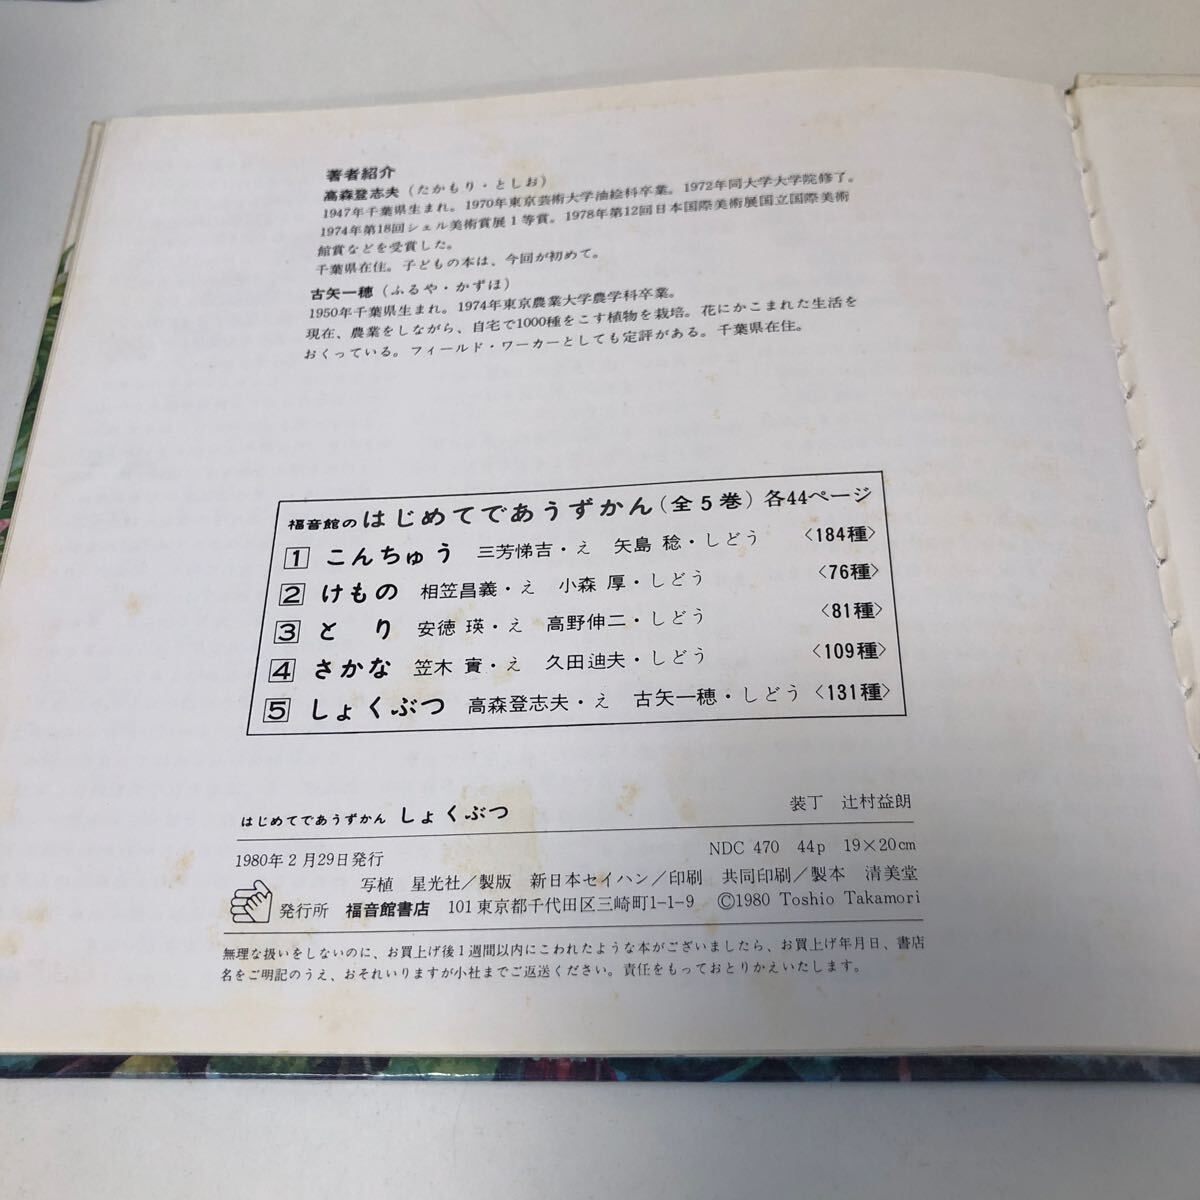 著者紹介
高森登志夫（たかもり・としお）
1947年千葉県生まれ。1970年東京芸術大学油絵科卒業。1972年同大学大学院修了。
1974年第18回シェル美術賞展1等賞。1978年第12回日本国際美術展国立国際美術
館賞などを受賞した。
千葉県在住。子どもの本は、今回が初めて。
古矢一穂（ふるや・かずほ）
1950年千葉県生まれ。1974年東京農業大学農学科卒業。
現在、農業をしながら、自宅で1000種をこす植物を栽培。花にかこまれた生活を
おくっている。フィールド・ワーカーとしても定評がある。千葉県在住。
福音館のはじめてであうずかん（全5巻）各44ページ
1 こんちゅう 三芳悌吉・え 矢島 稔・しどう 〈184種〉
2 けもの 相笠昌義・え 小森 厚・しどう 〈76種〉
3 とり 安徳 瑛・え 高野伸二・しどう 〈81種〉
4 さかな 笠木 實・え 久田迪夫・しどう 〈109種〉
5 しょくぶつ 高森登志夫・え 古矢一穂・しどう 〈131種〉
はじめてであうずかん しょくぶつ 装丁 辻村益朗
1980年2月29日発行 NDC 470 44p 19×20cm
写植 星光社／製版 新日本セイハン／印刷 共同印刷／製本 清美堂
発行所 福音館書店 101東京都千代田区三崎町1-1-9 ©1980 Toshio Takamori
無理な扱いをしないのに、お買上げ後1週間以内にこわれたような本がございましたら、お買上げ年月日、書店
名をご明記のうえ、おそれいりますが小社までご返送ください。責任をもっておとりかえいたします。